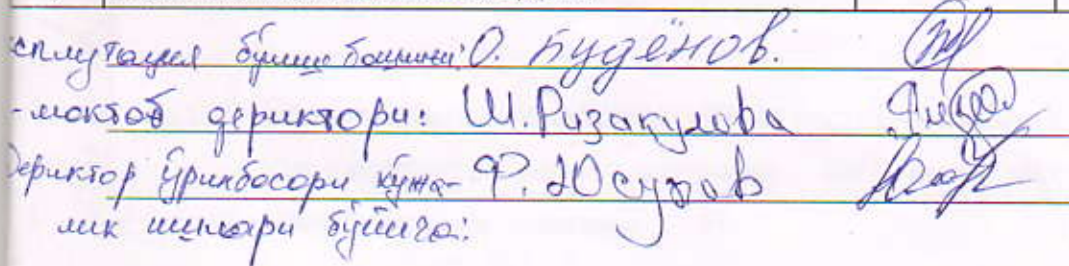 сплутация бўлим бошлиғи: О. Будёнов.
-моктоб дериктори: Ш. Ризакулова
Дериктор ўринбосори хўжа- Ф. Юсупов
лик ишлари бўйича: